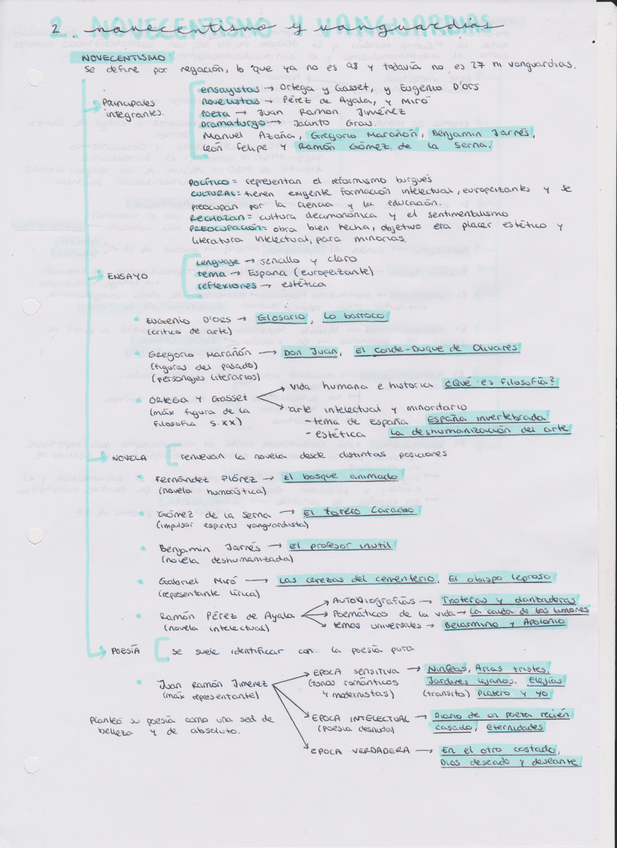 2. NOVECENTISMO Y VANGUARDIAS
novecentismo y vanguardias
NOVECENTISMO
Se define por negación, lo que ya no es 98 y todavía no es 27 ni vanguardias.
Principales integrantes.
ensayistas → Ortega y Gasset, y Eugenio D'ors
novelistas → Pérez de Ayala, y Miró
Poeta → Juan Ramón Jiménez
Dramaturgo → Jacinto Grau.
Manuel Azaña, Gregorio Marañón, Benjamín Jarnés,
León Felipe y Ramón Gómez de la Serna.
POLÍTICO = representan el reformismo burgués
CULTURAL = tienen exigente formación intelectual, europeizantes y se
preocupan por la ciencia y la educación.
RECHAZAN = cultura decimonónica y el sentimentalismo
PREOCUPACIÓN = obra bien hecha, objetivo era placer estético y
literatura intelectual, para minorías.
ENSAYO
Lenguaje → sencillo y claro
tema → España (europeizante)
reflexiones → estética
• EUGENIO D'ORS → Glosario, Lo barroco
(crítico de arte)
• Gregorio Marañón → Don Juan, El conde-Duque de Olivares
(figuras del pasado)
(personajes literarios)
• Ortega y Gasset
(máx figura de la
filosofía S.XX)
vida humana e historia ¿Qué es filosofía?
arte intelectual y minoritario
- tema de españa España invertebrada
- estética La deshumanización del arte
NOVELA
renuevan la novela desde distintas posiciones
• Fernández Flórez → El bosque animado
(novela humorística)
• Gómez de la Serna → El torero Caracho
(impulsor espíritu vanguardista)
• Benjamin Jarnés → El profesor inutil
(novela deshumanizada)
• Gabriel Miró → Las cerezas del cementerio, El obispo leproso
(representante lírica)
• Ramón Pérez de Ayala
(novela intelectual)
AUTOBIOGRAFÍAS → Troteras y danzaderas
Poemáticas de la vida → La caída de los limones
temas universales → Belarmino y Apolonio
POESÍA
se suele identificar con la poesía pura
• Juan Ramón Jiménez
(máx representante)
EPOCA SENSITIVA → Ninfeas, Arias tristes,
(tonos románticos Jardines lejanos. Elejías
y modernistas) (transito) Platero y yo
EPOCA INTELECTUAL → Diario de un poeta recién
(poesía desnuda) casado, eternidades
EPOCA VERDADERA → En el otro costado,
Dios deseado y deseante
Planteó su poesía como una sed de
belleza y de absoluto.